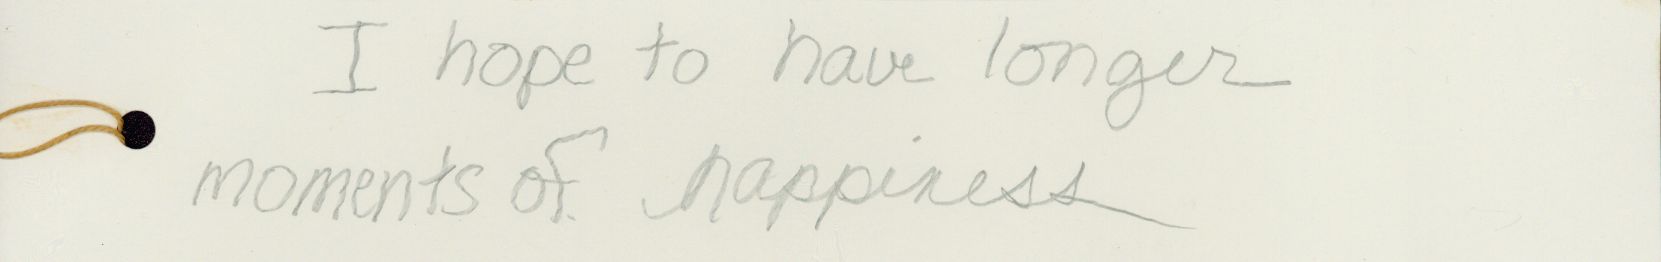 I hope to have longer
moments of happiness